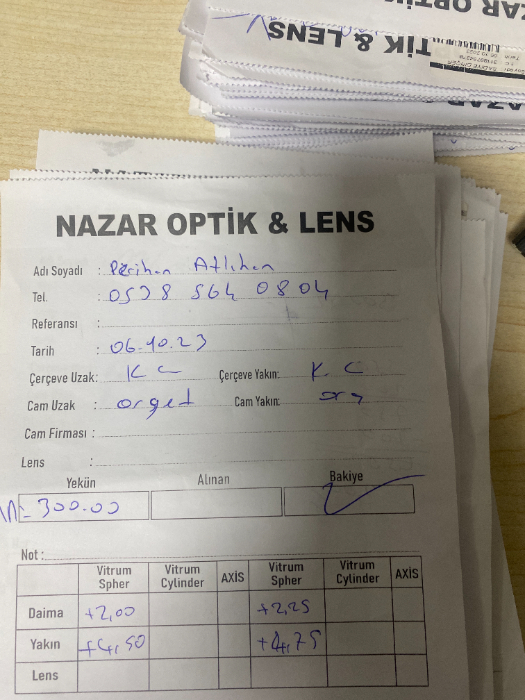 TİK & LENS
NAZAR OPTİK & LENS
Adı Soyadı : Perihan Atlıhan
Tel. : 0538 564 0804
Referansı :
Tarih : 06.10.23
Çerçeve Uzak: K C Çerçeve Yakın: K. C
Cam Uzak : orged Cam Yakın: org
Cam Firması :
Lens :
Yekün Alınan Bakiye
300.00
Not :
Vitrum Spher Vitrum Cylinder AXİS Vitrum Spher Vitrum Cylinder AXİS
Daima +2,00 +2,25
Yakın +4,50 +4,75
Lens